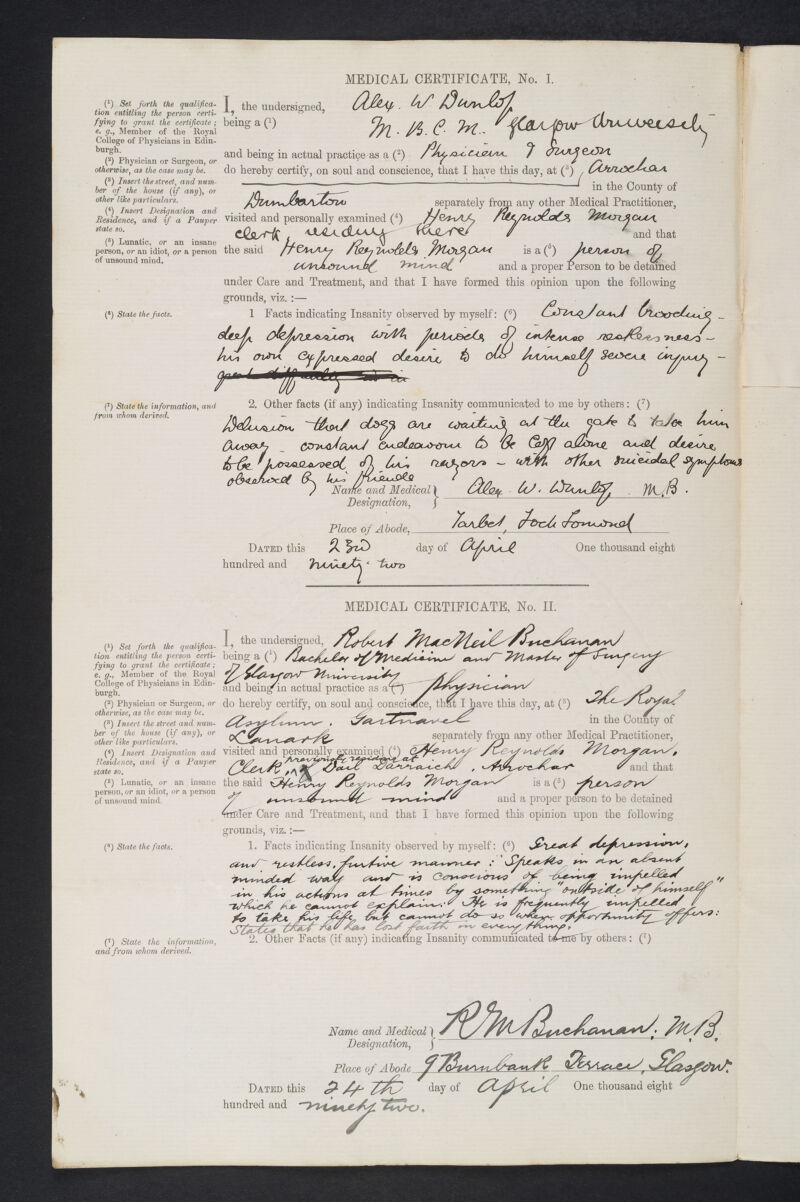 MEDICAL CERTIFICATE, No. I.
(¹) Set forth the qualifica-
tion entitling the person certi-
fying to grant the certificate;
e. g., Member of the Royal
College of Physicians in Edin-
burgh.
(²) Physician or Surgeon, or
otherwise, as the case may be.
(³) Insert the street, and num-
ber of the house (if any), or
other like particulars.
(⁴) Insert Designation and
Residence, and if a Pauper
state so.
(⁵) Lunatic, or an insane
person, or an idiot, or a person
of unsound mind.
I, the undersigned, Alex. W Dunlop
being a (¹) M. B. C. M. Glasgow University
and being in actual practice as a (²) Physician & Surgeon
do hereby certify, on soul and conscience, that I have this day, at (³) Arrochar
in the County of
Dumbarton separately from any other Medical Practitioner,
visited and personally examined (⁴) Henry Reynolds Morgan
clerk, residing there and that
the said Henry Reynolds Morgan is a (⁵) person of
unsound mind and a proper Person to be detained
under Care and Treatment, and that I have formed this opinion upon the following
grounds, viz. :—
(⁶) State the facts.
1 Facts indicating Insanity observed by myself: (⁶) Constant brooding -
deep depression with periods of intense restlessness -
his own expressed desire to do himself severe injury -
great difficulty
(⁷) State the information, and
from whom derived.
2. Other facts (if any) indicating Insanity communicated to me by others: (⁷)
Delusion that dogs are waiting at the gate to take him
away - constant endeavour to be left alone and desire
to be possessed of his razors - with other suicidal symptoms
observed by his friends
Name and Medical Designation, Alex. W. Dunlop, M.B.
Place of Abode, Tarbet, Loch Lomond
DATED this 23rd day of April One thousand eight
hundred and ninety-two
MEDICAL CERTIFICATE, No. II.
(¹) Set forth the qualifica-
tion entitling the person certi-
fying to grant the certificate;
e. g., Member of the Royal
College of Physicians in Edin-
burgh.
(²) Physician or Surgeon, or
otherwise, as the case may be.
(³) Insert the street and num-
ber of the house (if any), or
other like particulars.
(⁴) Insert Designation and
Residence, and if a Pauper
state so.
(⁵) Lunatic, or an insane
person, or an idiot, or a person
of unsound mind.
I, the undersigned, Robert MacNeil Buchanan
being a (¹) Bachelor of Medicine and Master of Surgery
of Glasgow University
and being in actual practice as a (²) physician
do hereby certify, on soul and conscience, that I have this day, at (³) The Royal
Asylum. Gartnavel in the County of
Lanark separately from any other Medical Practitioner,
visited and personally examined (⁴) Henry Reynolds Morgan.
previously residing at
Clerk, Dail Darraich, Arrochar and that
the said Henry Reynolds Morgan is a (⁵) person
of unsound mind and a proper person to be detained
under Care and Treatment, and that I have formed this opinion upon the following
grounds, viz. :—
(⁶) State the facts.
1. Facts indicating Insanity observed by myself: (⁶) Great depression,
and restless, furtive manner: Speaks in an absent
minded way and is conscious of being impelled
in his actions at times by something "outside of himself"
which he cannot explain: He is frequently impelled
to take his life but cannot do so when opportunity offers:
States that he has lost faith in everything.
(⁷) State the information,
and from whom derived.
2. Other Facts (if any) indicating Insanity communicated to me by others: (⁷)
Name and Medical Designation, R M Buchanan. M.B.
Place of Abode 9 Burnbank Terrace, Glasgow.
DATED this 24th day of April One thousand eight
hundred and ninety two.